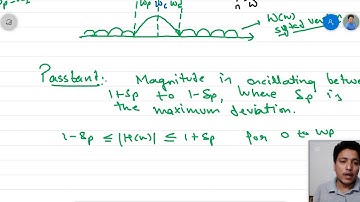 wp wc
W(w)
Passband: Magnitude is oscillating betwe
1+δp to 1-δp, where δp is
the maximum deviation.
1-δp ≤ |H(w)| ≤ 1+δp for 0 to wp